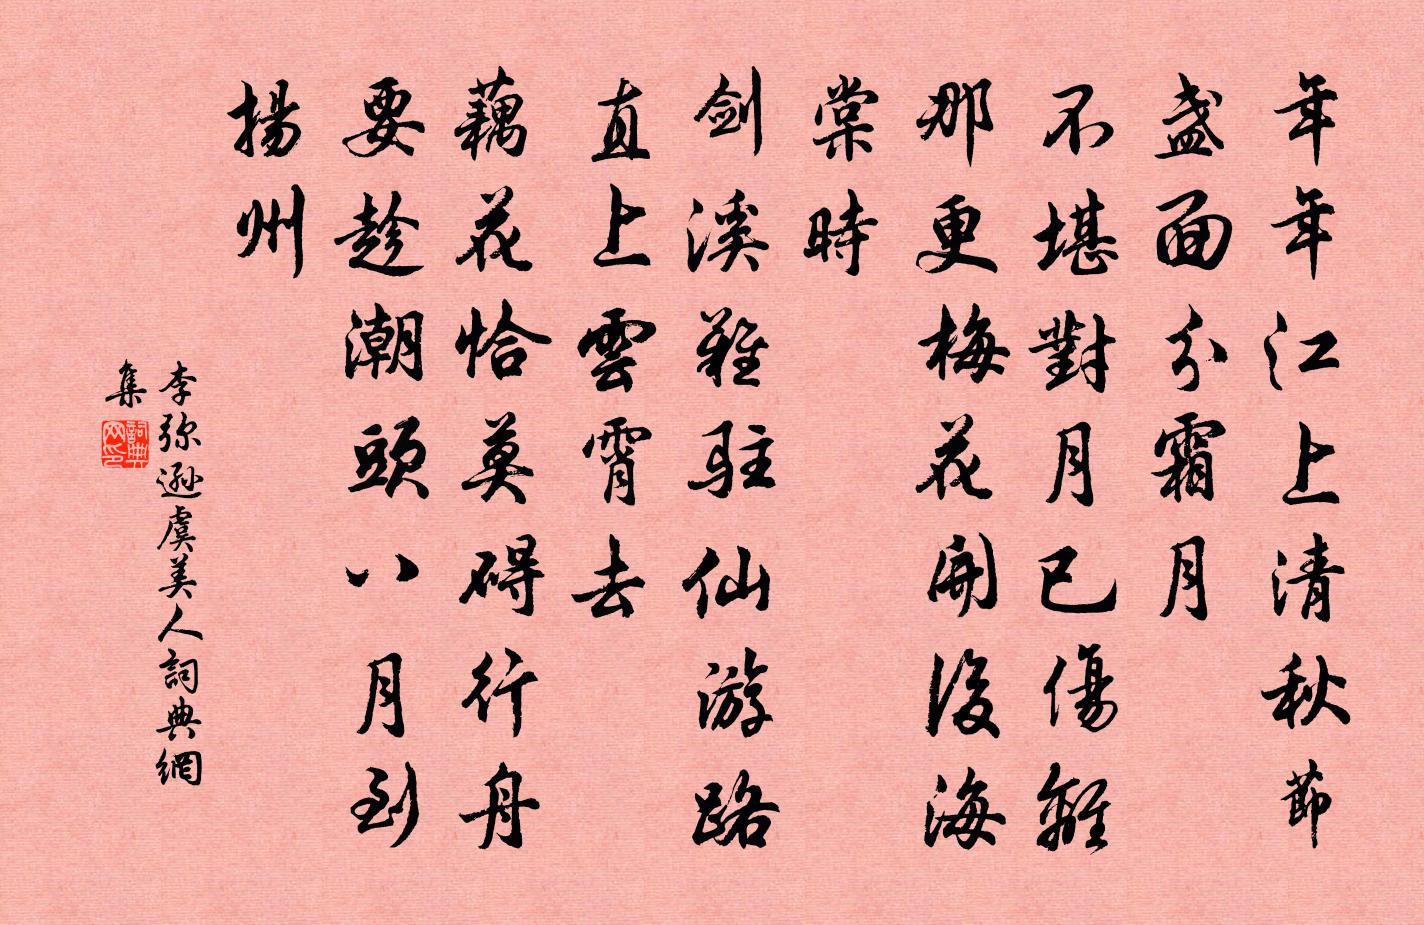 年年江上清秋節
盞面分霜月
不堪對月已傷離
那更梅花開後海
棠時
劍溪難駐仙游路
直上雲霄去
藕花恰莫礙行舟
要趁潮頭八月到
揚州
李弥遜虞美人詞典網
集
詞典网印